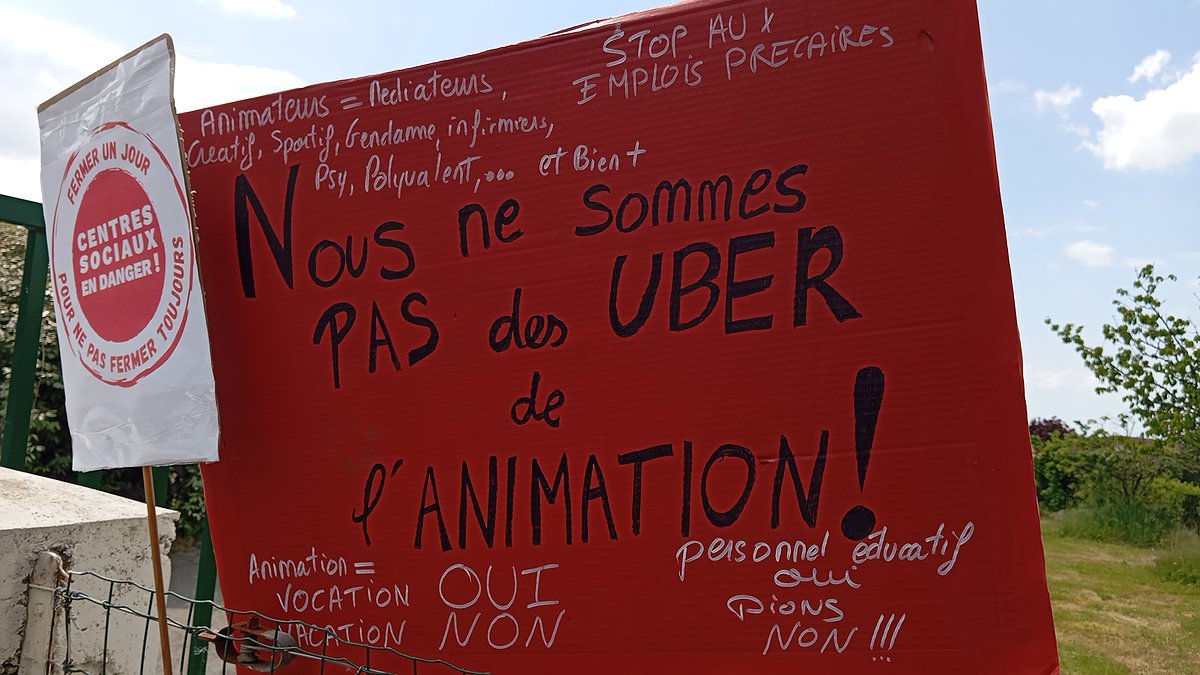 FERMER UN JOUR
CENTRES
SOCIAUX
EN DANGER !
POUR NE PAS FERMER TOUJOURS
STOP AUX
EMPLOIS PRECAIRES
Animateurs = Mediateurs,
Creatif, Sportif, Gendarme, infirmiers,
Psy, Polyvalent,... et Bien +
Nous ne sommes
PAS des UBER
de
l'ANIMATION !
Animation =
VOCATION OUI
VACATION NON
personnel éducatif
oui
pions
NON !!!